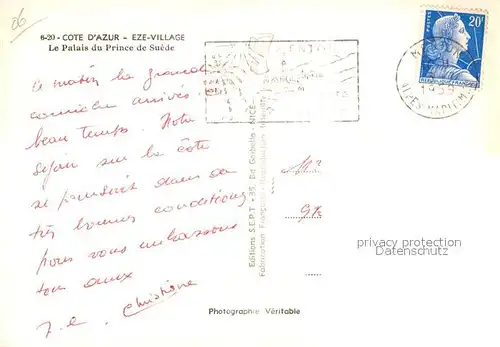 06
6-20 - COTE D'AZUR - EZE-VILLAGE
Le Palais du Prince de Suède
Ce matin la grande
corniche arrivés
beau temps. Notre
séjour sur la côte
se poursuit dans de
très bonnes conditions
nous vous embrassons
tous deux
Christiane
MENTON
POSTES 20F
REPUBLIQUE FRANÇAISE
ALPES-MARITIMES
Editions S.E.P.T - 35, Bd Gorbella - NICE
Fabrication Française - Reproduction Interdite
privacy protection
Datenschutz
Photographie Véritable